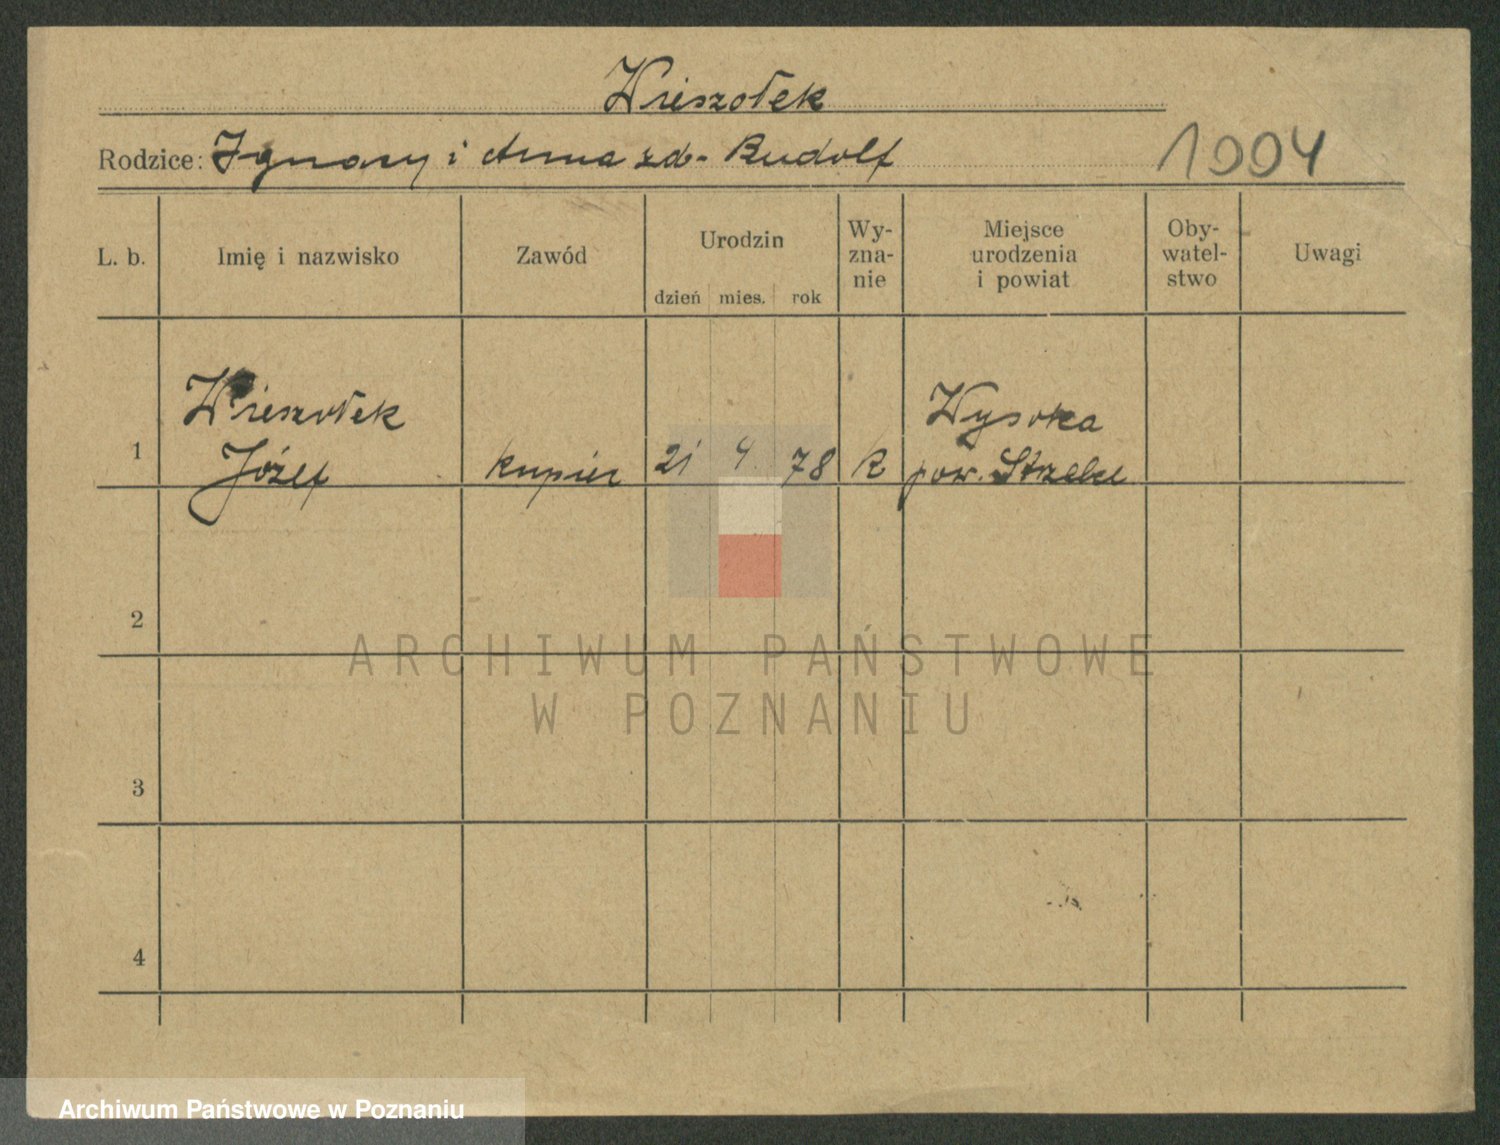 Wieszołek
Rodzice: Ignacy i Anna zd. Rudolf
1004
L. b.
Imię i nazwisko
Zawód
Urodzin
dzień mies. rok
Wy-
zna-
nie
Miejsce
urodzenia
i powiat
Oby-
watel-
stwo
Uwagi
1
Wieszołek
Józef
kupiec
21 4. 78
R
Wysoka
pow.
2
3
4
ARCHIWUM PAŃSTWOWE
W POZNANIU
Archiwum Państwowe w Poznaniu